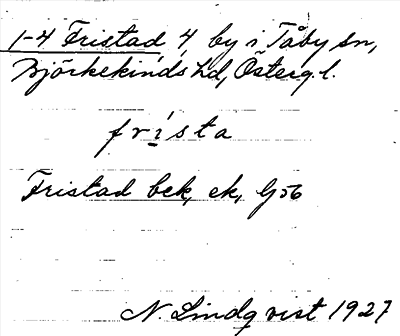 1-4 Fristad 4, by i Tåby sn,
Björkekinds hd, Österg.l.
frista
Fristad bek, ek, Gsb
N. Lindqvist 1927